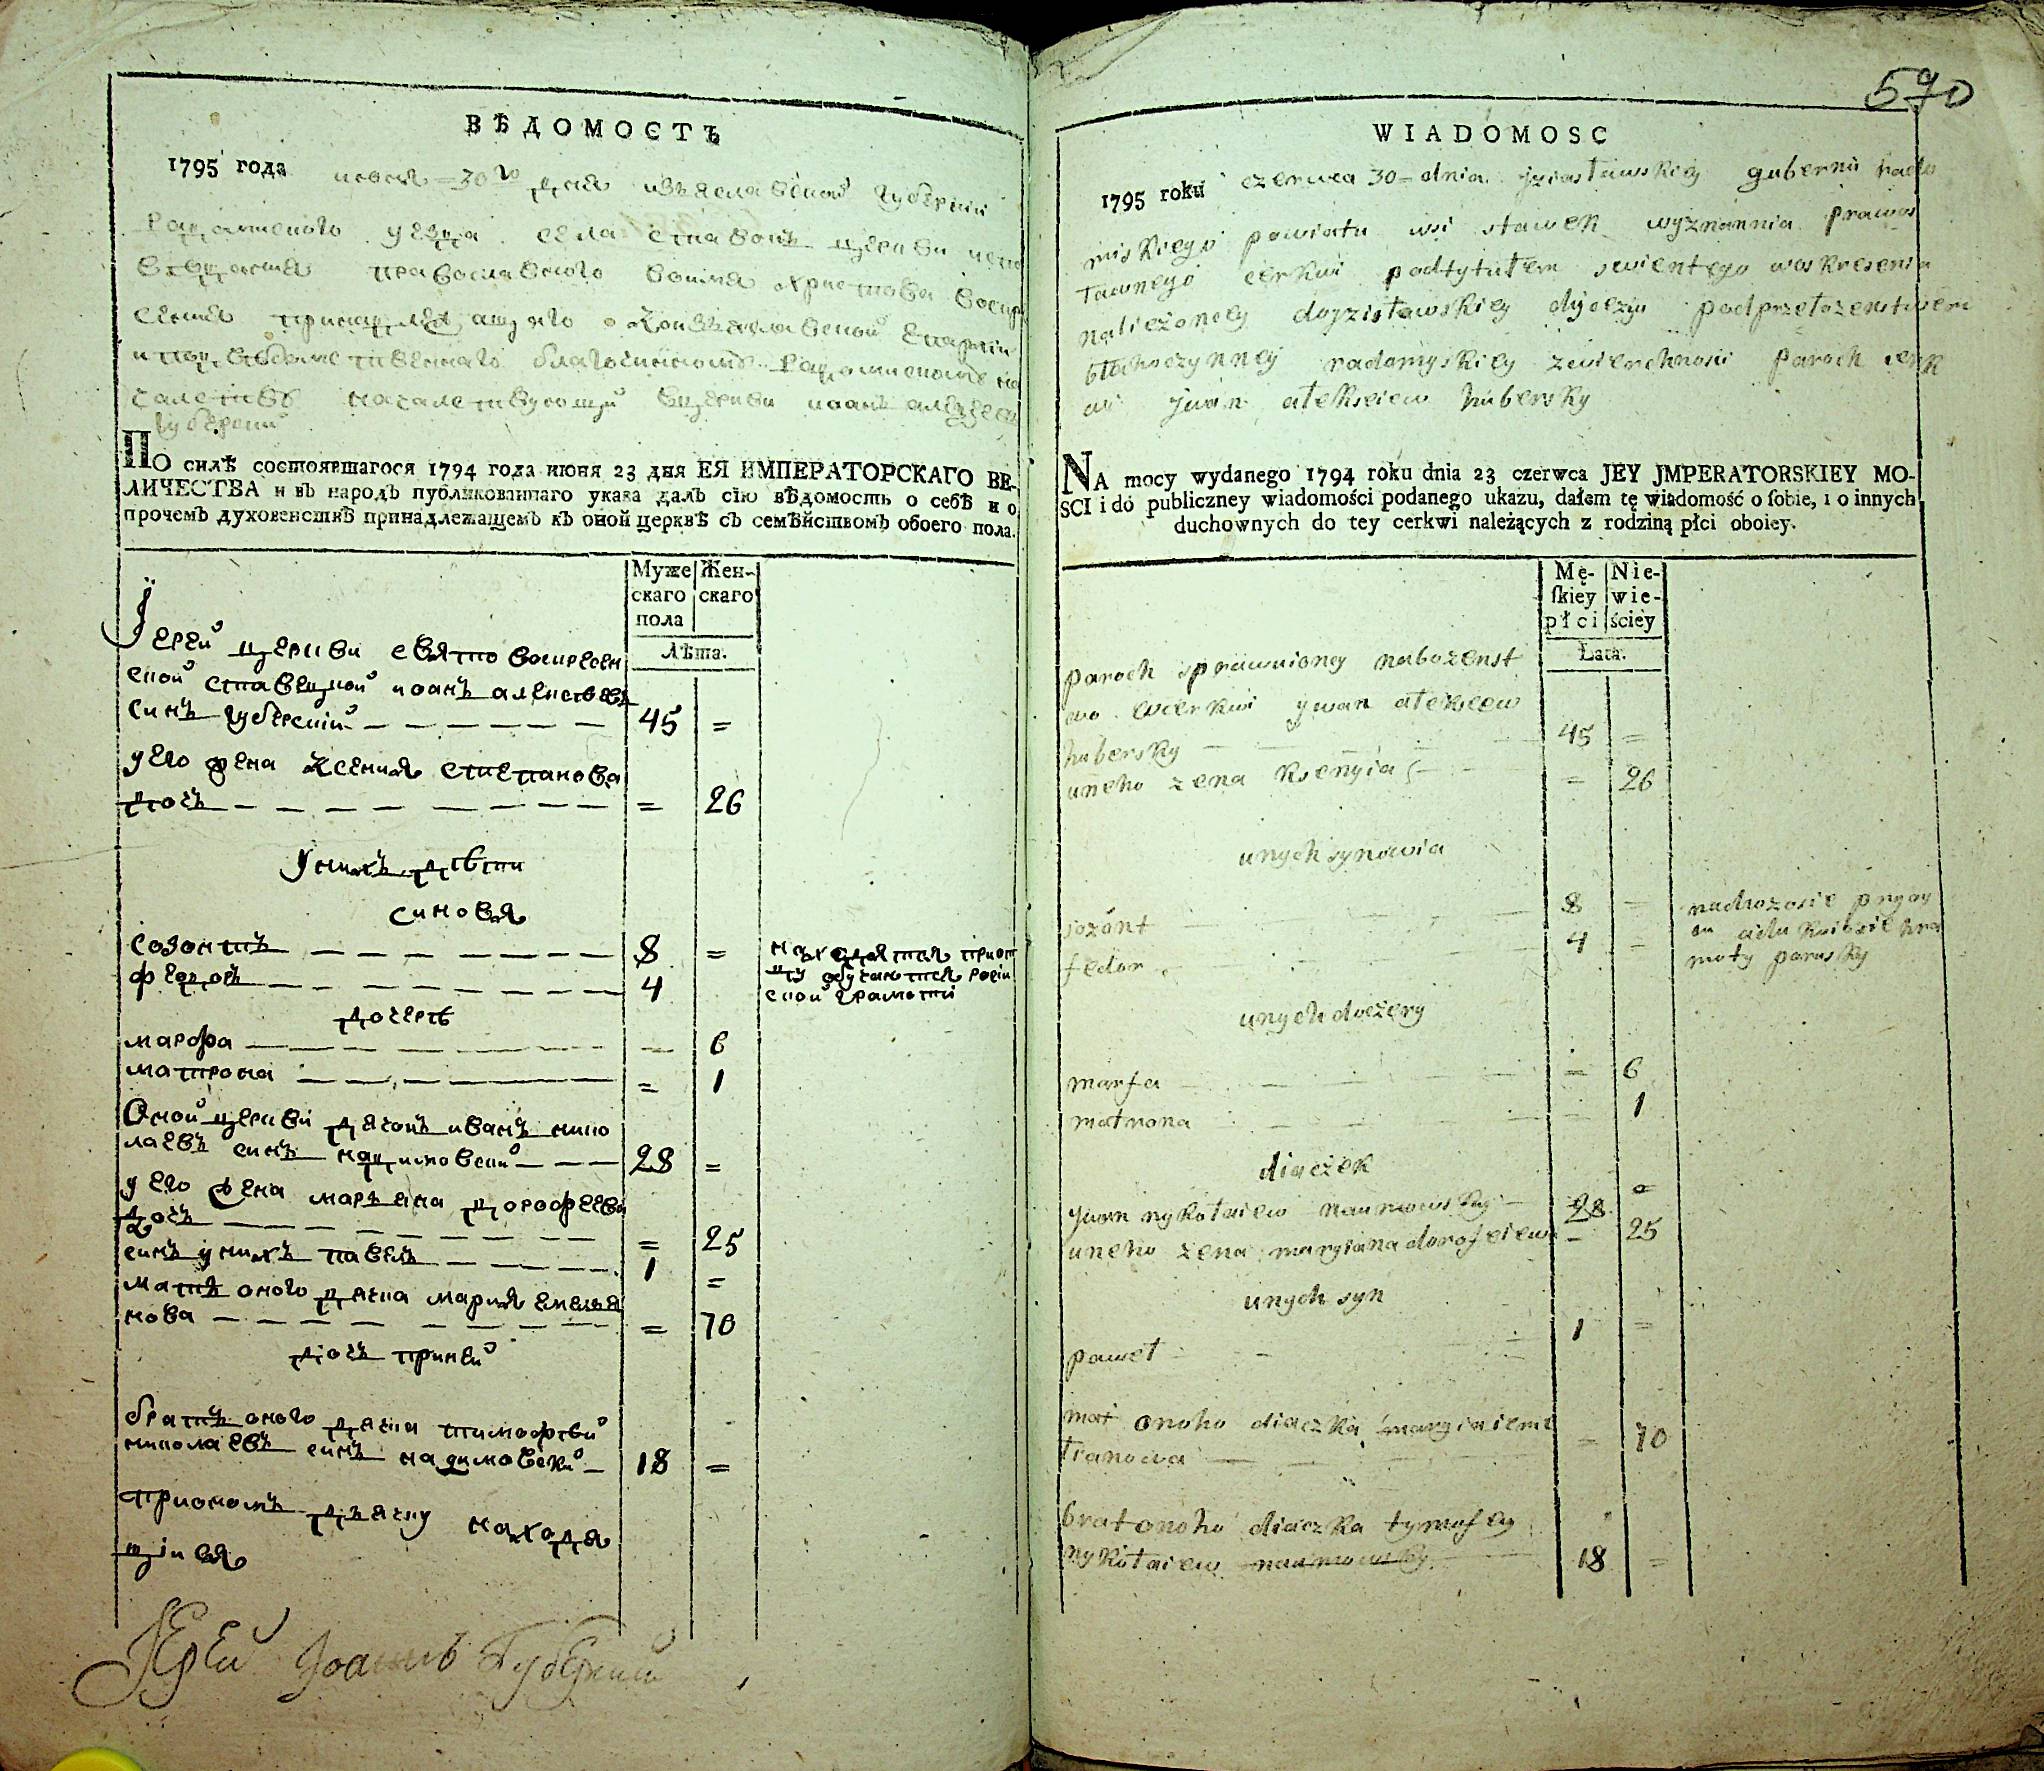 ВѢДОМОСТЬ
1795 года июня 30го дня изъяславской губернїи
радомského уезда села ставокъ церкви
православного воима христова воскр
губерский
ПО силѣ состоявшагося 1794 года июня 23 дня ЕЯ ИМПЕРАТОРСКАГО ВЕ-
ЛИЧЕСТВА и въ народъ публикованнаго указа далъ сїю вѣдомость о себѣ и о
прочемъ духовенствѣ принадлежащемъ къ оной церквѣ съ семѣйствомъ обоего пола.
Муже
скаго
пола
Жен-
скаго
Лѣта.
Їерей церкви свято воскресен
ской ставецкой иоанъ алексѣевъ
синъ губерский 45 =
у его жена ксения степанова
дочъ = 26
У нихъ дѣти
синовя
созонтъ 8 = находятся при от
цу обучаются росїи
ской грамоти
федоръ 4
дочерѣ
марфа = 6
матрона = 1
Оной церкви дячокъ иванъ нико
лаевъ синъ наумовский 28 =
у его жена маръяна дорофеева
дочъ = 25
синъ у нихъ павелъ 1 =
матъ оного дячка мария емелъя
нова = 70
братъ оного дячка тимофѣй
николаевъ синъ наумовский 18 =
при ономъ дъячку находя
щїися
Їерей Іоаннъ Губский
570
WIADOMOSC
1795 roku czerwca 30 = dnia jziasławskiey gubernii rado
miskiego powiatu wsi stawek wyznannia prawos
ławnego cerkwi podtytułem swientego woskresenia
należoncey dojzisławskiey dyjeczyi podprzełożenstwem
błahoczynney radomyskiey zwierchnosti Paroch cerk
wi jwan ałeksiejew hubersky
NA mocy wydanego 1794 roku dnia 23 czerwca JEY JMPERATORSKIEY MO-
SCI i do publiczney wiadomości podanego ukazu, dałem tę wiadomość o sobie, i o innych
duchownych do tey cerkwi należących z rodziną płci oboiey.
Mę-
skiey
płci
Nie-
wie-
ściey
Łata.
paroch sprawuioncy nabozenst
wo wcerkwi ywan ałeksiew
hubersky 45 =
uneho zena ksenyia = 26
unych synowia
sozont 8 =
fedor 4 =
unych doczery
marfa = 6
matrona 1
diaczek
jwan nykołaiew naumowsky 28 =
uneho zena maryiana dorofeiewa = 25
unych syn
paweł 1 =
mat onoho diaczka maryia iemi
lianowa = 70
brat onoho diaczka tymofey
nykołaiew naumowsky 18 =